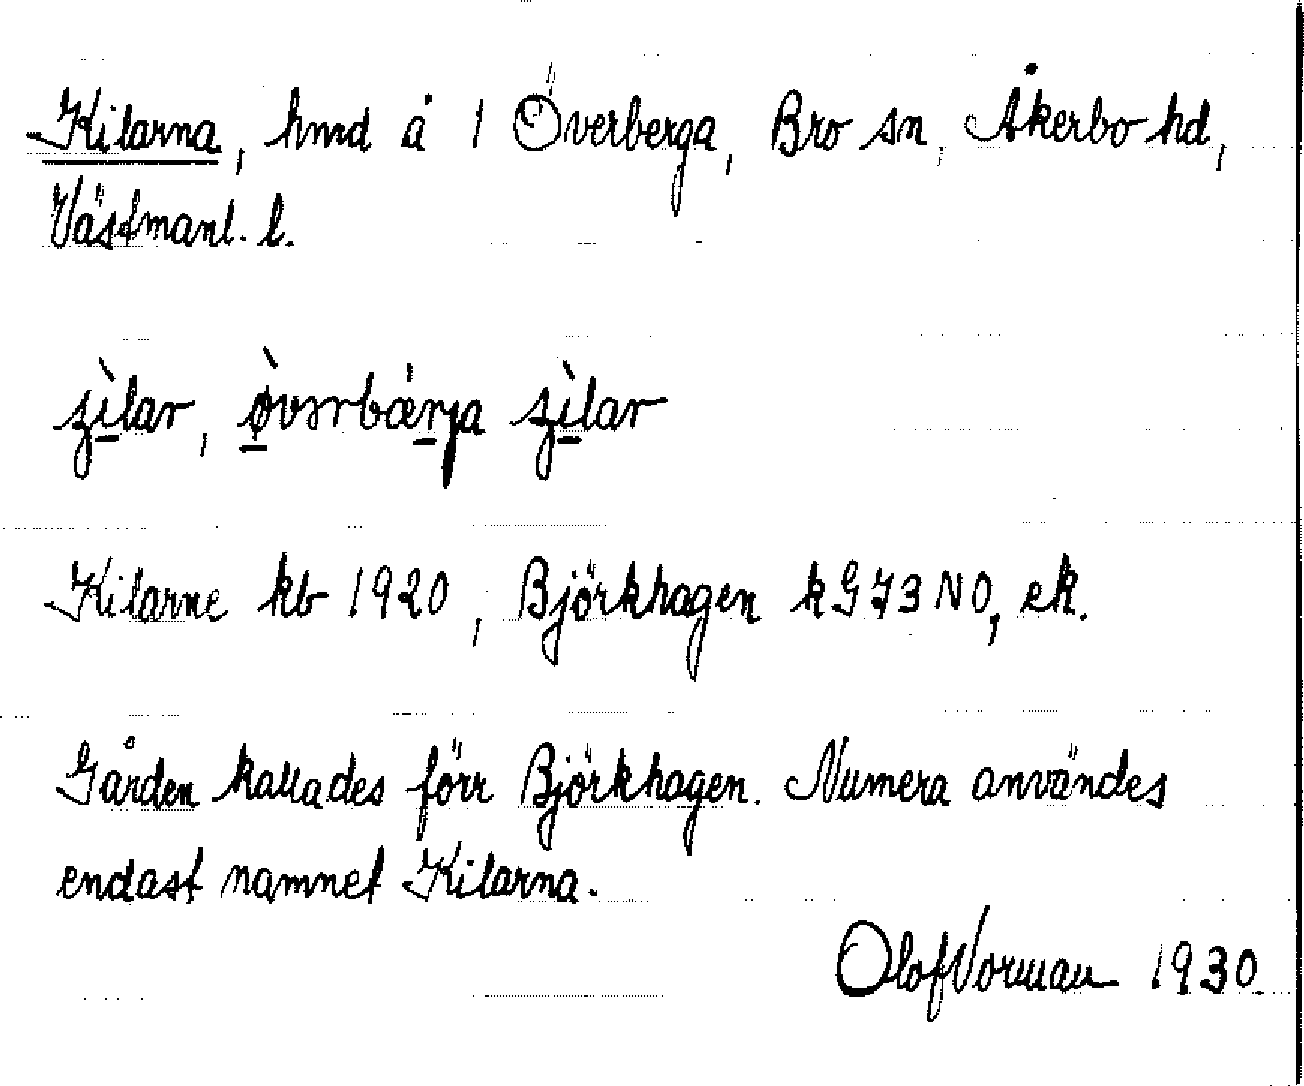 Kilarna, hmd å 1 Överberga, Bro sn, Åkerbo hd,
Västmanl. l.
ʒì̱lar, ø̱̀vərbǽṟja ʒì̱lar
Kilarne kb 1920, Björkhagen kG73NO, ek.
Gården kallades förr Björkhagen. Numera användes
endast namnet Kilarna.
Olof Vorman 1930